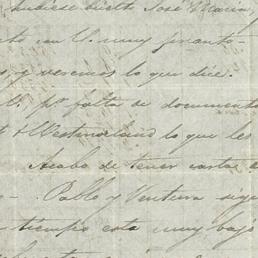 hubiese vuelto José María
con V. muy pronto
y veremos lo que dice.
V. pr falta de documento
& Westmoreland lo que les
Acabo de tener carta
Pablo y Ventura sigu
tiempo esta muy bajo